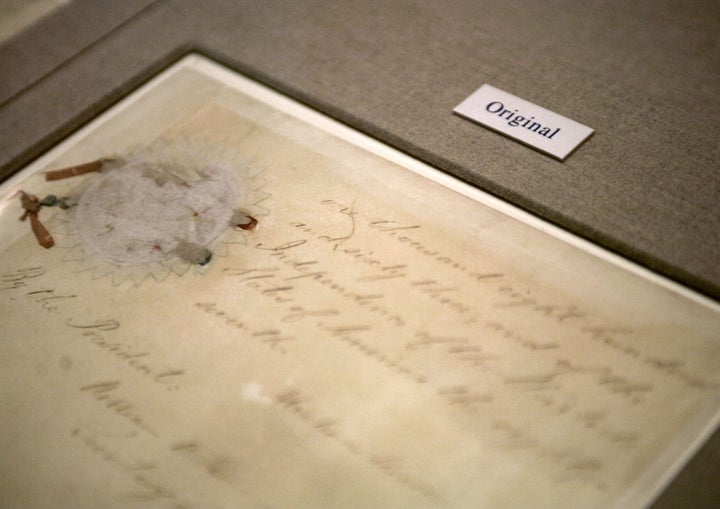 Original
one thousand eight hundred
and sixty three, and of the
Independence of the United
States of America the eighty-
seventh.
By the President: